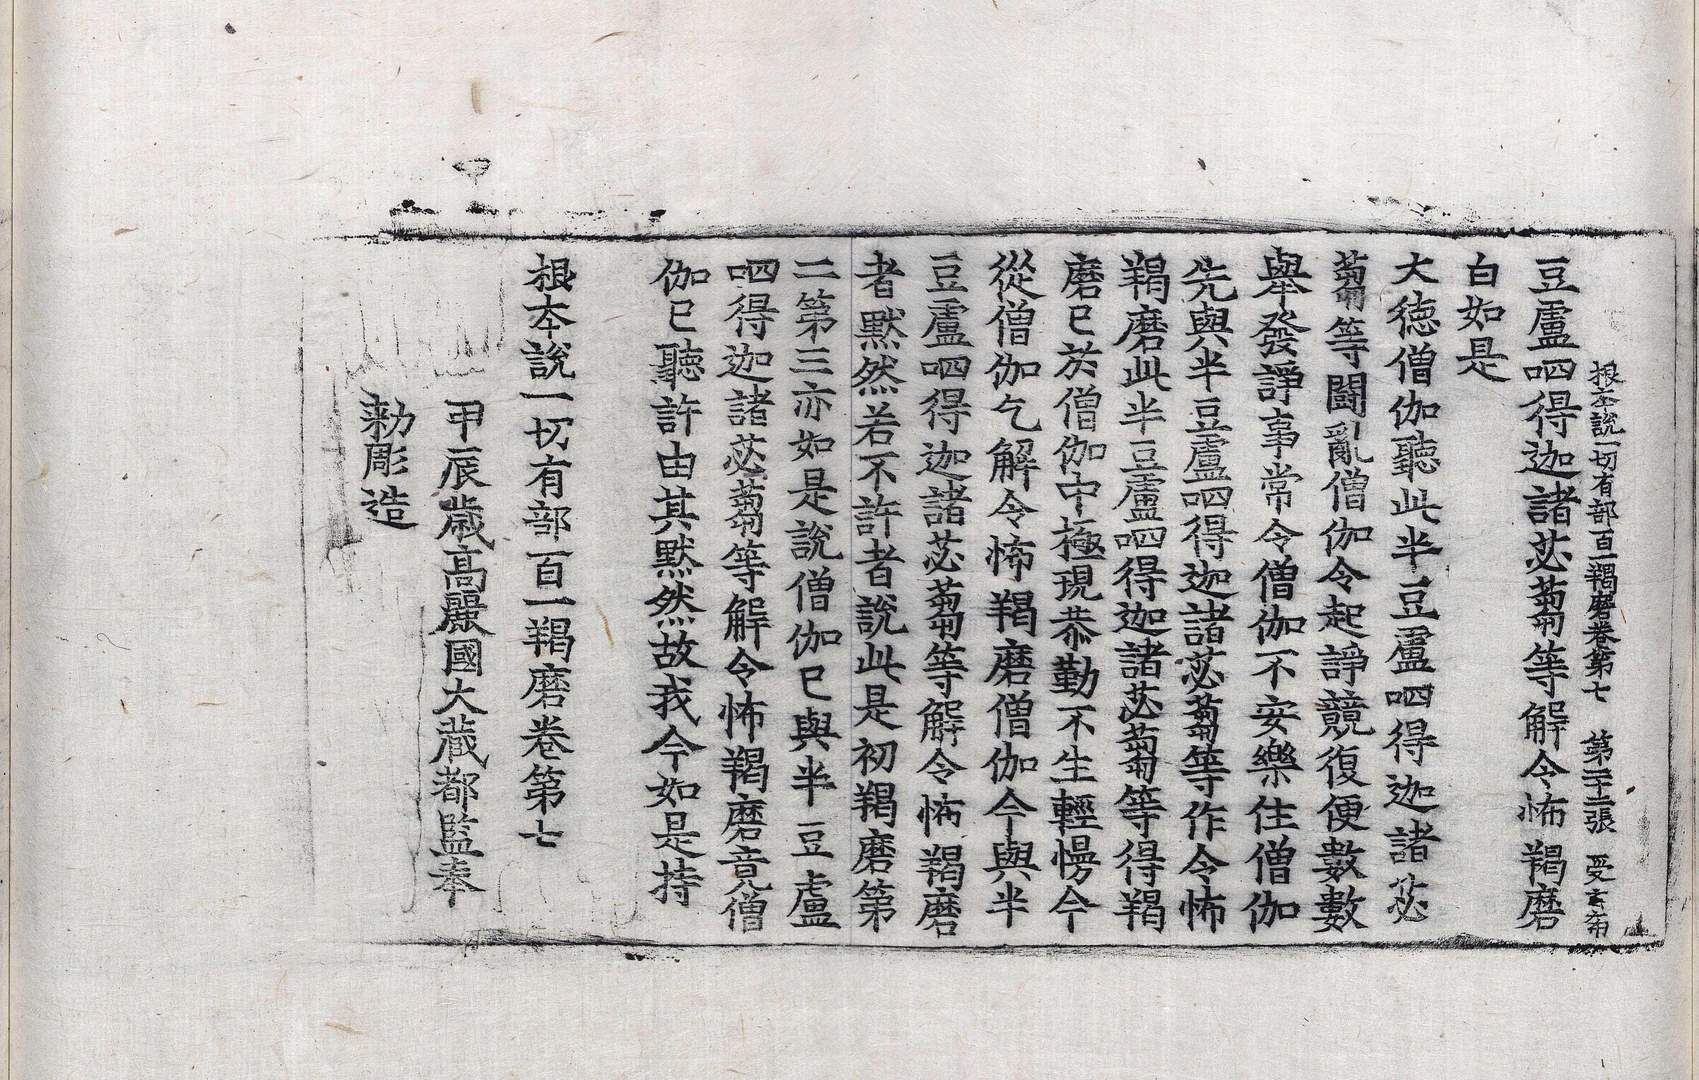 根本說一切有部百一羯磨卷第七 第二十二張
豆盧呬得迦諸苾蒭等解令怖羯磨
白如是
大德僧伽聽此半豆盧呬得迦諸苾
蒭等鬪亂僧伽令起諍競復便數數
舉發諍事常令僧伽不安樂住僧伽
先與半豆盧呬得迦諸苾蒭等作令怖
羯磨此半豆盧呬得迦諸苾蒭等得羯
磨已於僧伽中極現恭勤不生輕慢今
從僧伽乞解令怖羯磨僧伽今與半
豆盧呬得迦諸苾蒭等解令怖羯磨
者默然若不許者說此是初羯磨第
二第三亦如是說僧伽已與半豆盧
呬得迦諸苾蒭等解令怖羯磨竟僧
伽已聽許由其默然故我今如是持
根本說一切有部百一羯磨卷第七
甲辰歲高麗國大藏都監奉
勅彫造